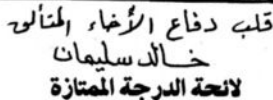 قلب دفاع الأخاء المتألق
خالد سليمان
لائحة الدرجة الممتازة